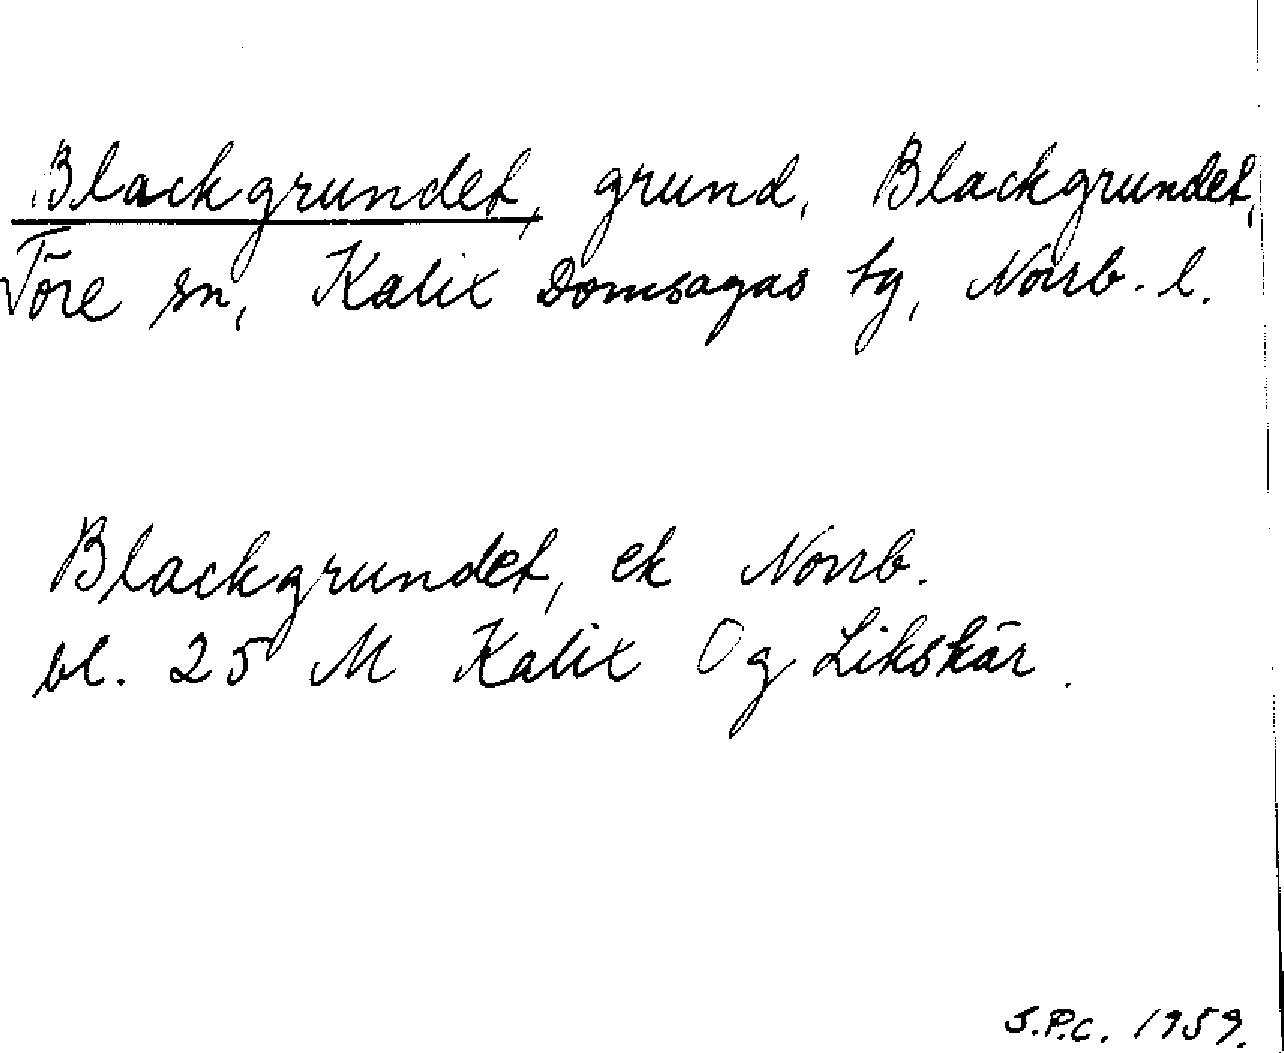 Blackgrundet, grund, Blackgrundet,
Töre sn, Kalix Domsagas tg, Norrb. l.
Blackgrundet, ek Norrb.
bl. 25 M Kalix Og Likskär.
J.P.C. 1959.